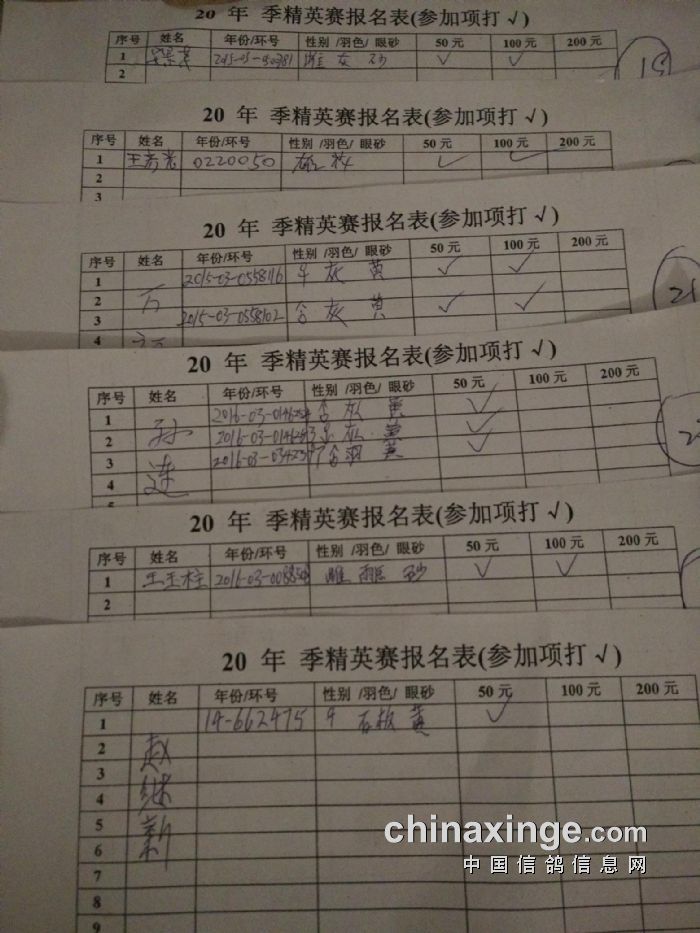 20 年 季精英赛报名表(参加项打 √)
序号 姓名 年份/环号 性别 /羽色/ 眼砂 50 元 100 元 200 元
1 雌 灰 砂 √ √
2
15
20 年 季精英赛报名表(参加项打 √)
序号 姓名 年份/环号 性别 /羽色/ 眼砂 50 元 100 元 200 元
1 0220050 √ √
2
3
20 年 季精英赛报名表(参加项打 √)
序号 姓名 年份/环号 性别 /羽色/ 眼砂 50 元 100 元 200 元
1 2015-03-0558116 灰 黄 √ √
2 万
3 2015-03-0558102 灰 黄 √ √
4
20 年 季精英赛报名表(参加项打 √)
序号 姓名 年份/环号 性别 /羽色/ 眼砂 50 元 100 元 200 元
1 灰 黄 √
2 孙 灰 黄 √
3 黄 √
4 连
20 年 季精英赛报名表(参加项打 √)
序号 姓名 年份/环号 性别 /羽色/ 眼砂 50 元 100 元 200 元
1 王玉柱 雌 砂 √ √
2
20 年 季精英赛报名表(参加项打 √)
序号 姓名 年份/环号 性别 /羽色/ 眼砂 50 元 100 元 200 元
1 14-662475 石板 黄 √
2 赵
3
4 继
5
6 新
7
8
9
chinaxinge.com
中国信鸽信息网